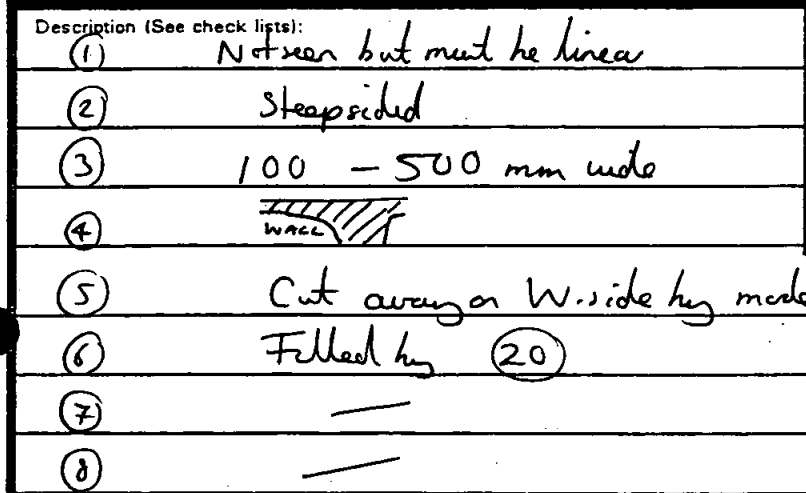 Description (See check lists):
① Not seen but must be linear
② Steepsided
③ 100 - 500 mm wide
④ WALL
⑤ Cut away on W. side by mode
⑥ Filled by ⑳
⑦ —
⑧ —